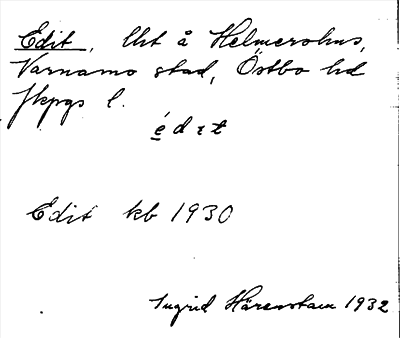 Edit, lht å Helmershus,
Värnamo stad, Östbo hd
Jkpgs l.
édɩt
Edit kb 1930
Ingrid Härenstam 1932